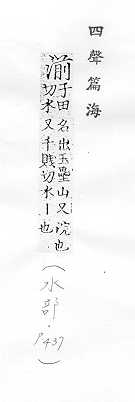 四聲篇海
湔子田切水名出玉壘山又浣也又千賤切水丨也
(水部．P437)